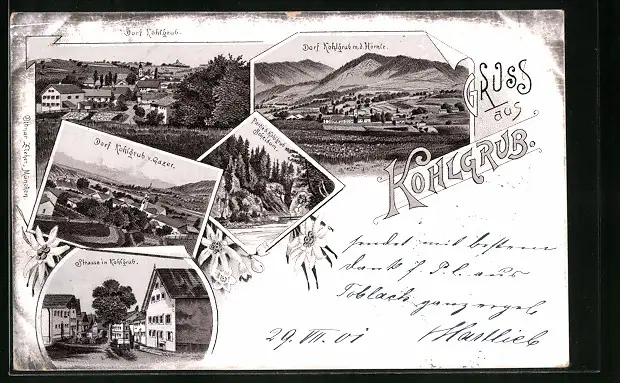 Dorf Kohlgrub.
Dorf Kohlgrub m. d. Hörnle.
GRUSS
aus
KOHLGRUB.
Dorf Kohlgrub v.
Strasse in Kohlgrub.
Ottmar Zieher, München
sendet mit bestem
dank f. P. C. aus
Toblach
29. VII. 01